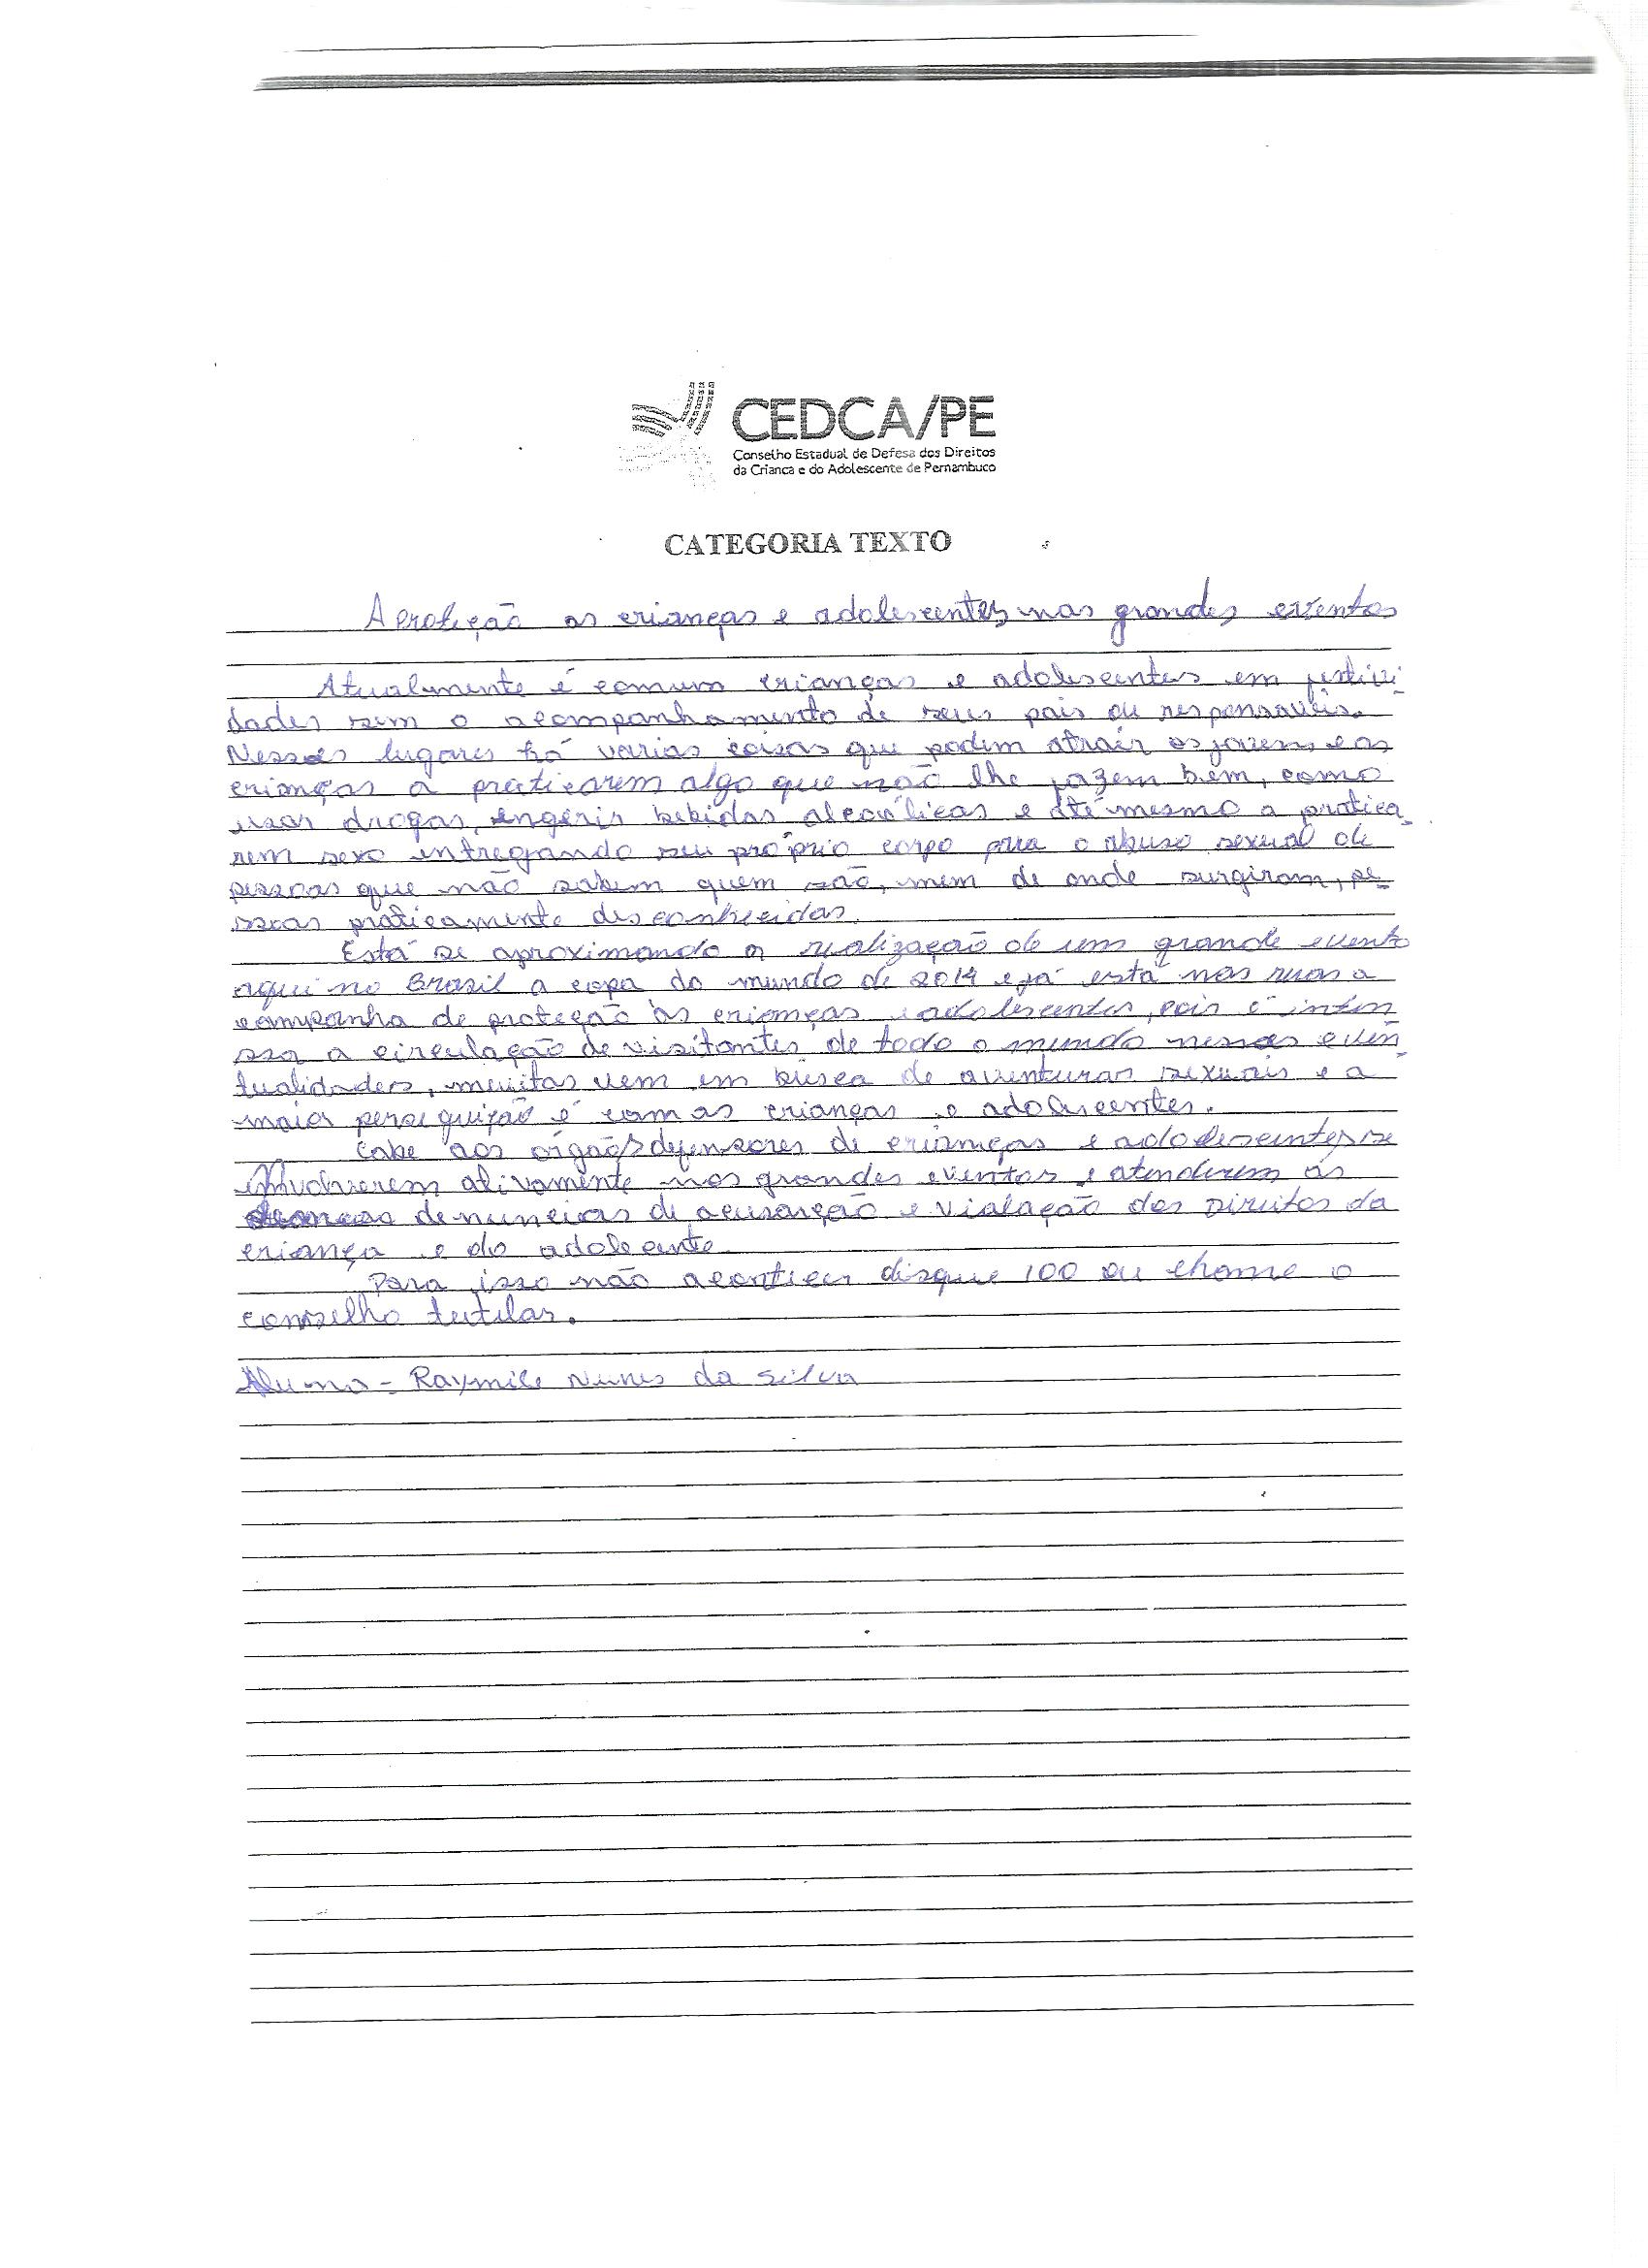 CEDCA/PE
Conselho Estadual de Defesa dos Direitos
da Crianca e do Adolescente de Pernambuco
CATEGORIA TEXTO
A proteção as crianças e adolescentes nos grandes eventos
Atualmente é comum crianças e adolescentes em festivi
dades sem o acompanhamento de seus pais ou responsavéis.
Nessas lugares há varias coisas que podem atrair os jovens e as
crianças a praticarem algo que não lhe fazem bem, como
usar drogas, engerir bebidas alcoólicas e até mesmo a pratica
rem sexo entregando seu próprio corpo para o abuso sexual de
pessoas que não sabem quem são, nem de onde surgiram, pe-
ssoas praticamente desconhecidas.
Está se aproximando a realização de um grande evento
aqui no Brasil a copa do mundo de 2014 e já está nas ruas a
campanha de proteção às crianças e adolescentes, pois é inten
ssa a circulação de visitantes de todo o mundo nessas even
tualidades, muitas vem em busca de aventuras sexuais e a
maior perseguição é com as crianças e adolescentes.
Cabe aos órgãos defensores de crianças e adolescentes se
envolverem ativamente nos grandes eventos e atenderem ás
denuncias de acusação e violação dos Direitos da
criança e do adolecente.
Para isso não acontecer disque 100 ou chame o
conselho tutelar.
Aluna - Raymile Nunes da Silva